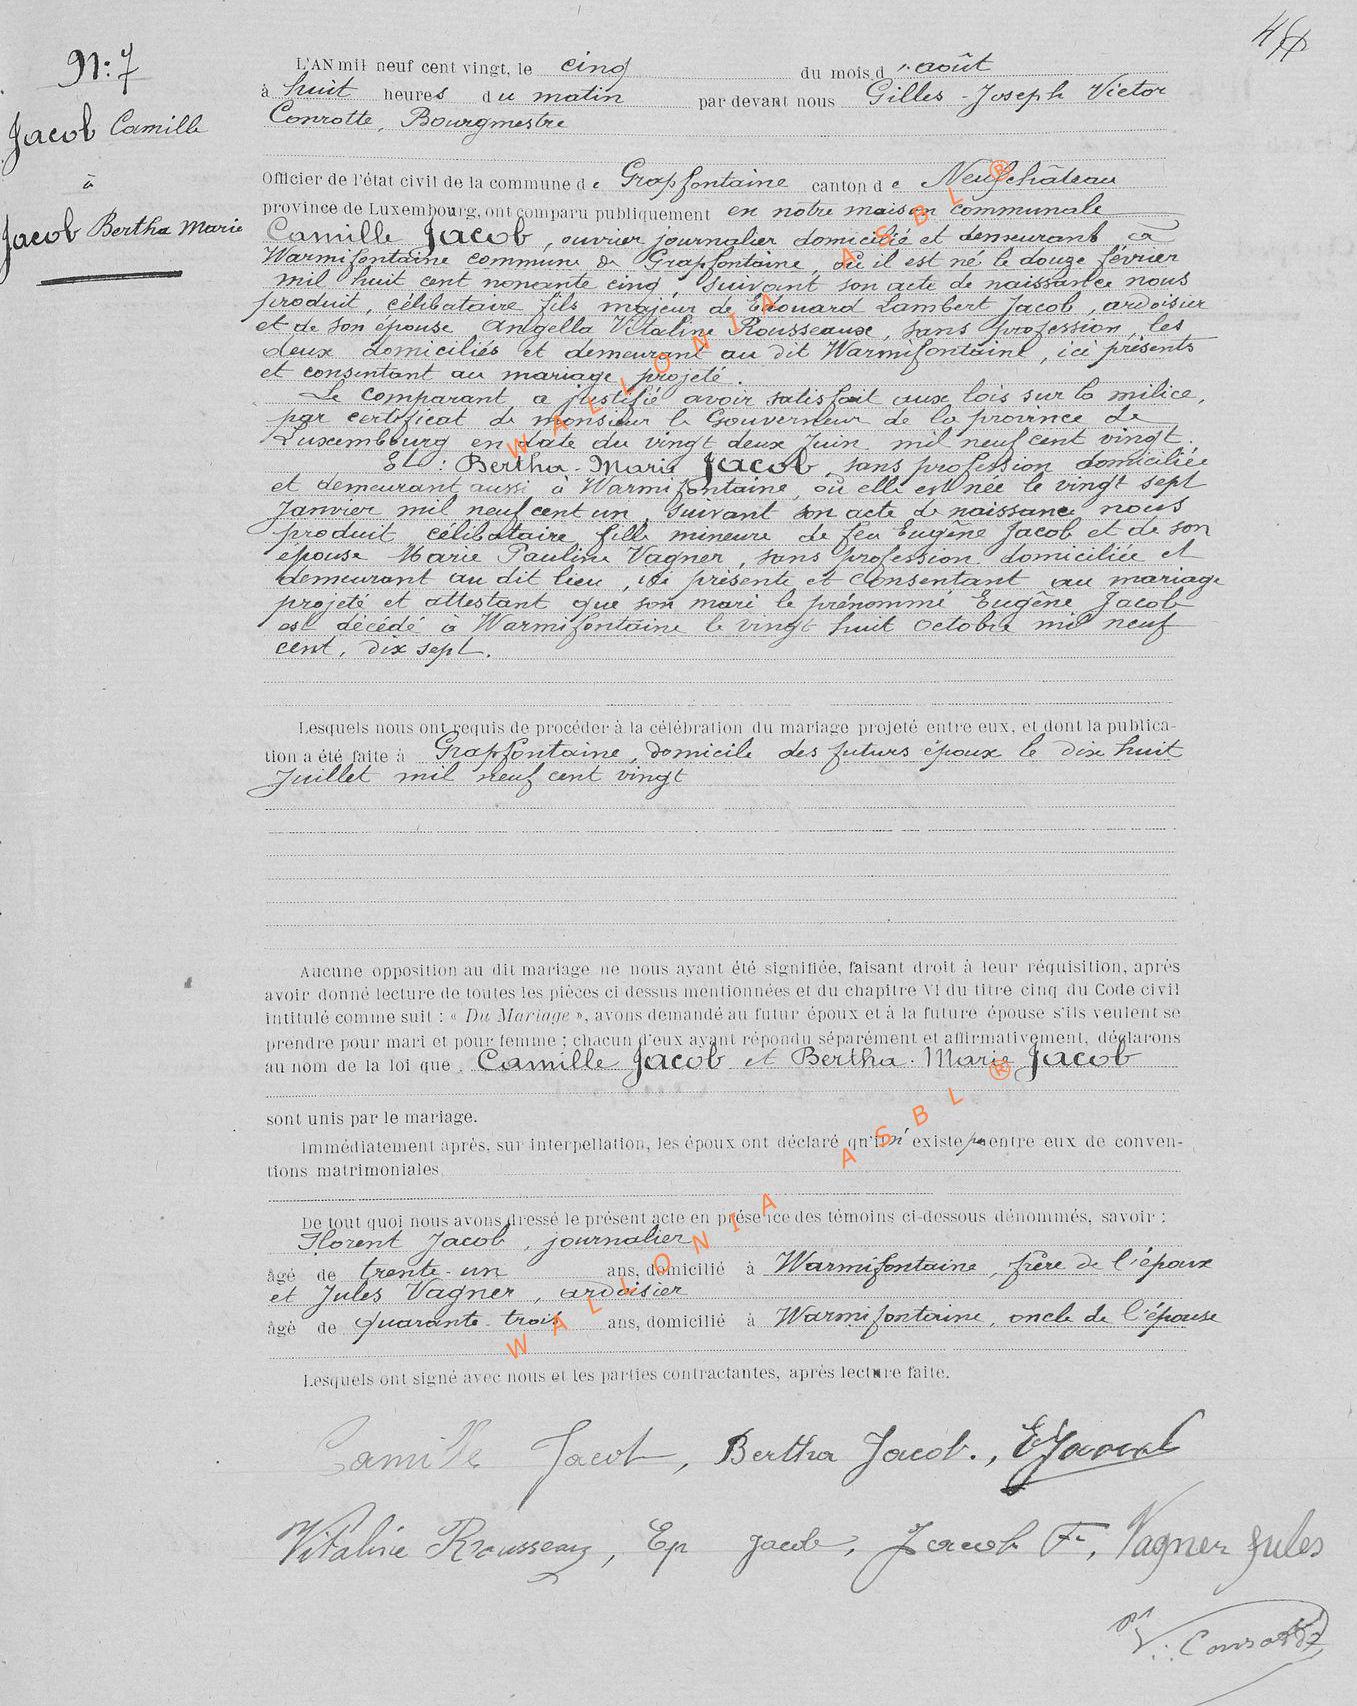 N: 7
Jacob Camille
à
Jacob Bertha Marie
L'AN mil neuf cent vingt, le cinq du mois d'août
à huit heures du matin par devant nous Gilles-Joseph Victor
Conrotte, Bourgmestre
Officier de l'état civil de la commune de Grapfontaine canton de Neufchâteau
province de Luxembourg, ont comparu publiquement en notre maison communale
Camille Jacob, ouvrier journalier domicilié et demeurant à
Warmifontaine commune de Grapfontaine, où il est né le douze février
mil huit cent nonante cinq, suivant son acte de naissance nous
produit, célibataire fils majeur de Edouard Lambert Jacob, ardoisier
et de son épouse, Angella Vitaline Rousseaux, sans profession, les
deux domiciliés et demeurant au dit Warmifontaine, ici présents
et consentant au mariage projeté.
Le comparant a justifié avoir satisfait aux lois sur la milice,
par certificat de monsieur le Gouverneur de la province de
Luxembourg en date du vingt deux Juin mil neuf cent vingt.
Et : Bertha-Marie Jacob, sans profession domiciliée
et demeurant aussi à Warmifontaine, où elle est née le vingt sept
Janvier mil neuf cent un, suivant son acte de naissance nous
produit, célibataire, fille mineure de feu Eugène Jacob et de son
épouse Marie Pauline Vagner, sans profession domiciliée et
demeurant au dit lieu, ici présente et consentant au mariage
projeté et attestant que son mari le prénommé Eugène Jacob
est décédé à Warmifontaine le vingt huit octobre mil neuf
cent, dix sept.
Lesquels nous ont requis de procéder à la célébration du mariage projeté entre eux, et dont la publica-
tion a été faite à Grapfontaine, domicile des futurs époux le dix huit
Juillet mil neuf cent vingt
Aucune opposition au dit mariage ne nous ayant été signifiée, faisant droit à leur réquisition, après
avoir donné lecture de toutes les pièces ci dessus mentionnées et du chapitre VI du titre cinq du Code civil
intitulé comme suit : « Du Mariage », avons demandé au futur époux et à la future épouse s'ils veulent se
prendre pour mari et pour femme ; chacun d'eux ayant répondu séparément et affirmativement, déclarons
au nom de la loi que Camille Jacob et Bertha-Marie Jacob
sont unis par le mariage.
Immédiatement après, sur interpellation, les époux ont déclaré qu'il n'existe pas entre eux de conven-
tions matrimoniales
De tout quoi nous avons dressé le présent acte en présence des témoins ci-dessous dénommés, savoir :
Florent Jacob, journalier
âgé de trente-un ans, domicilié à Warmifontaine, frère de l'époux
et Jules Vagner, ardoisier
âgé de quarante-trois ans, domicilié à Warmifontaine, oncle de l'épouse
Lesquels ont signé avec nous et les parties contractantes, après lecture faite.
Camille Jacob, Bertha Jacob., E Jacob
Vitaline Rousseaux, Ep Jacob, Jacob F., Vagner Jules
V. Conrotte
WALLONIA ASBL ®
WALLONIA ASBL ®